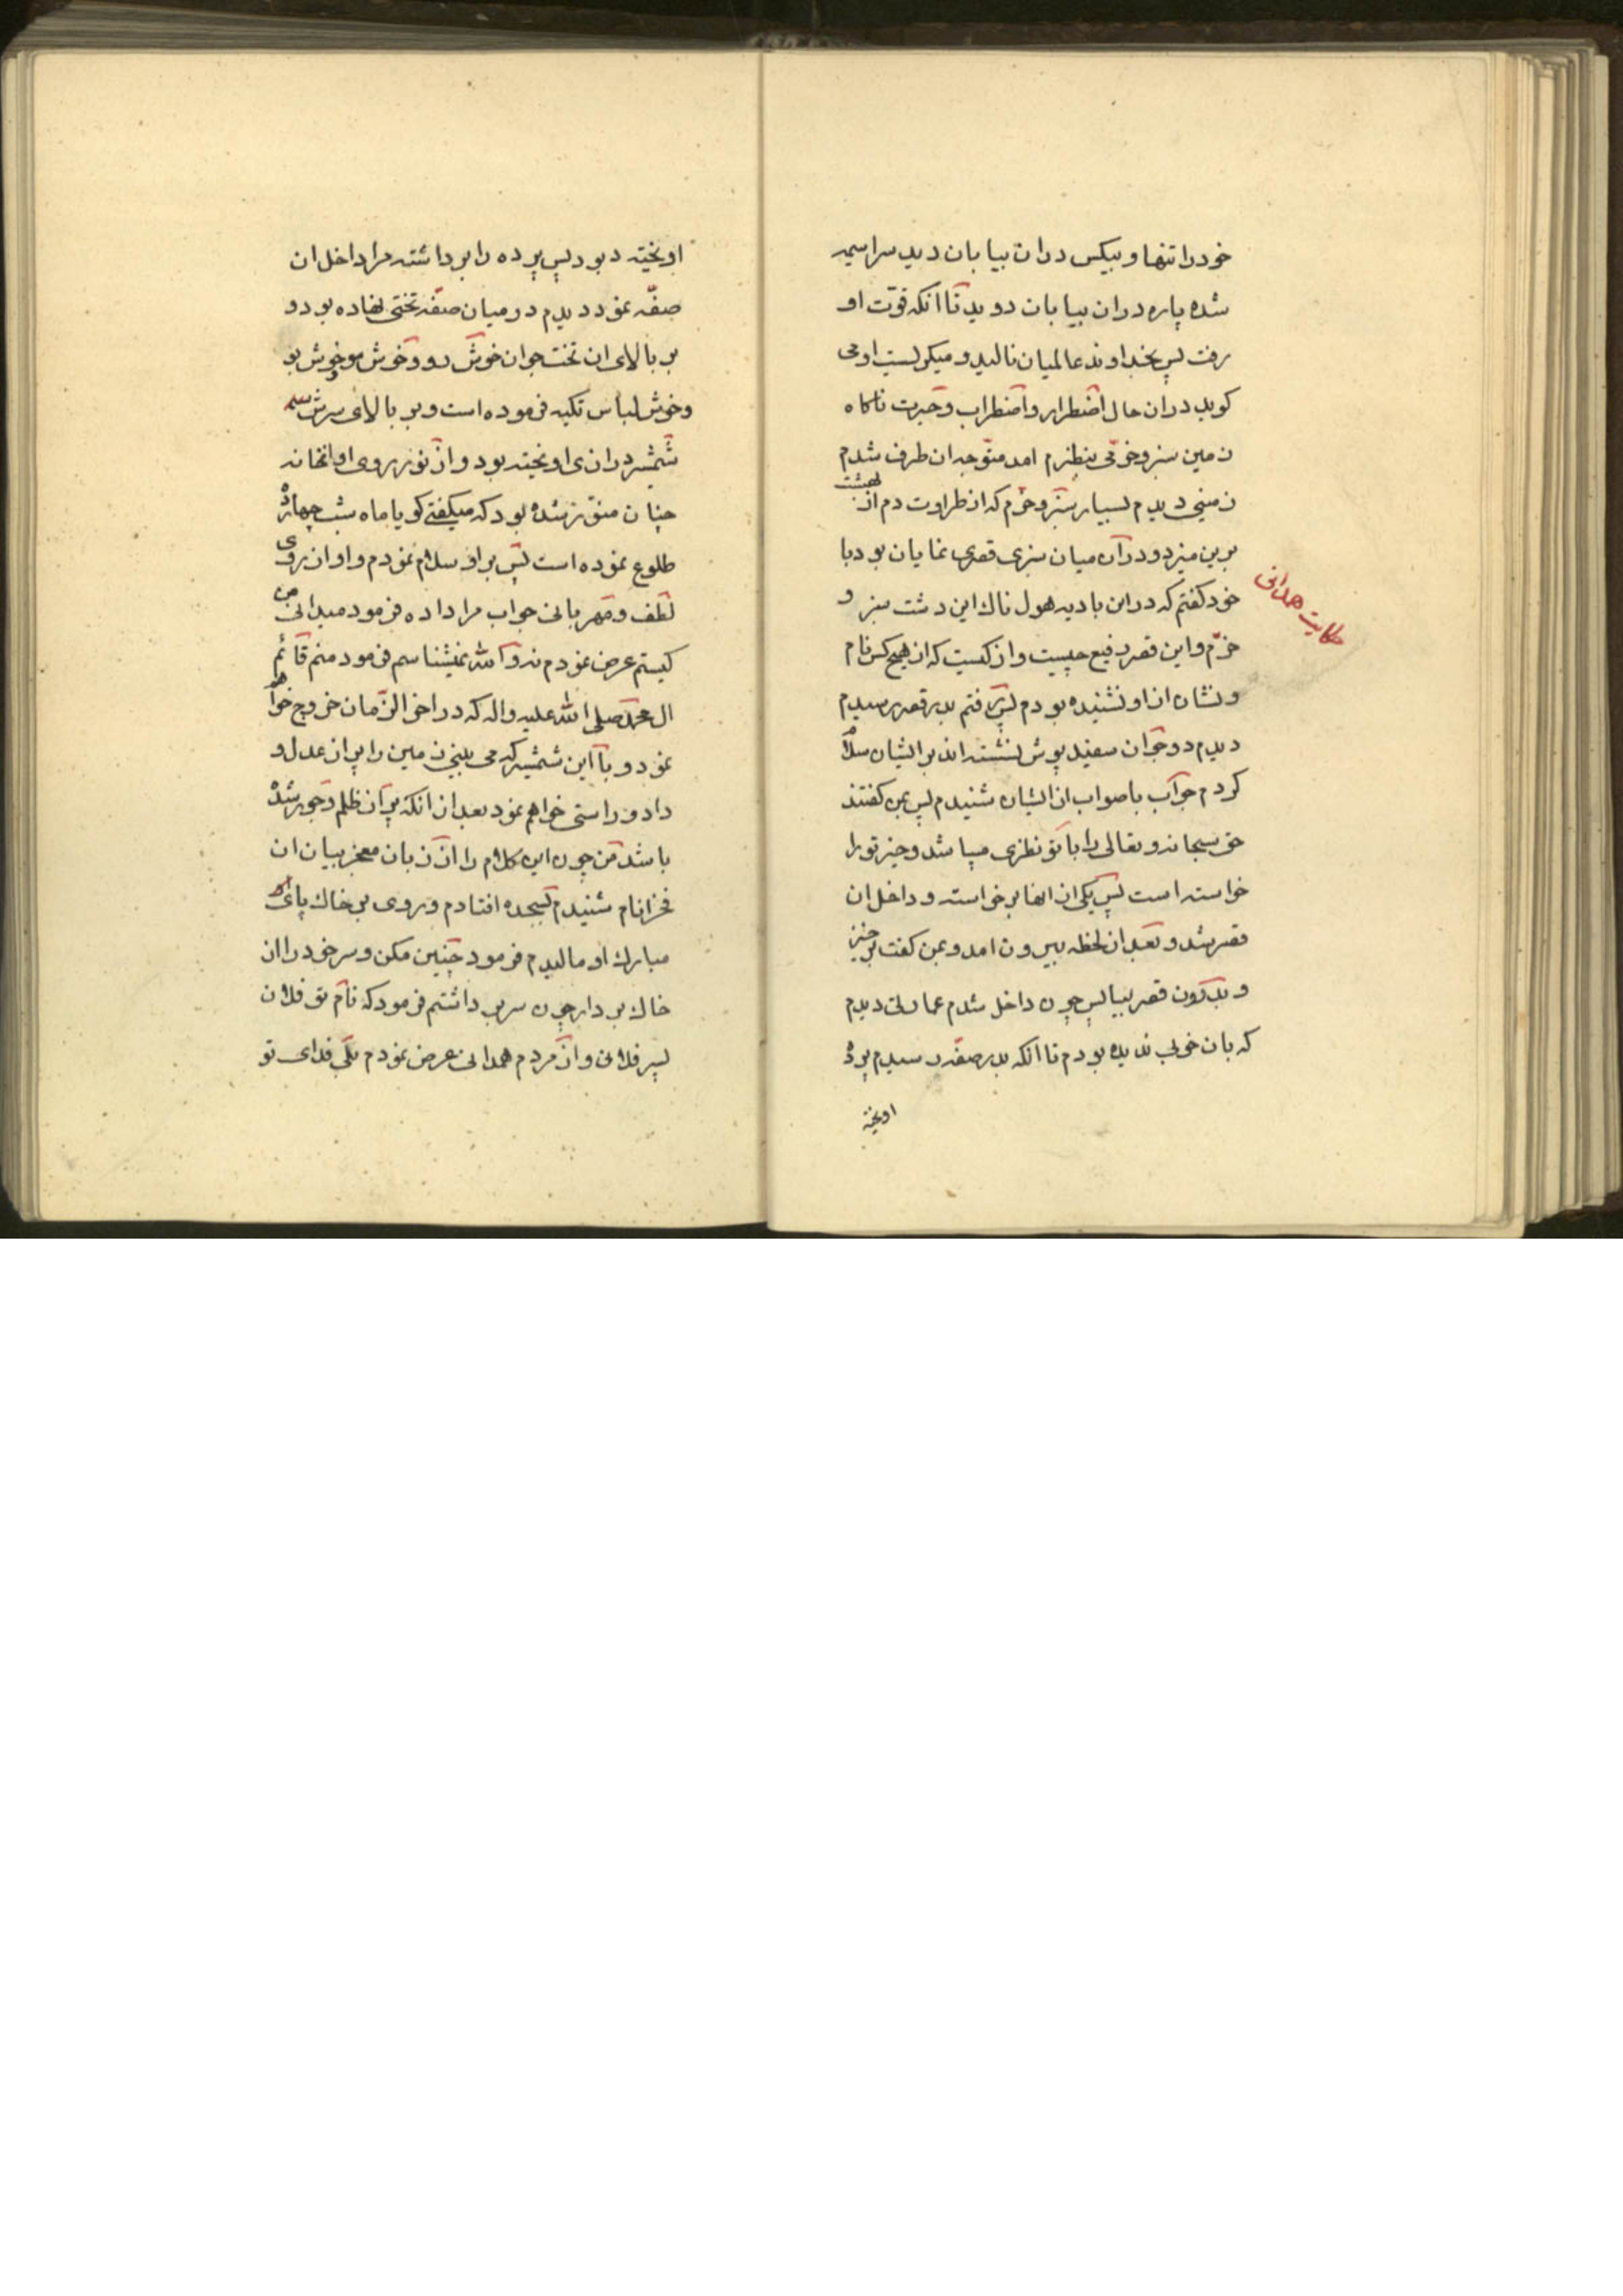 خود را تنها و بیکس در ان بیابان دید سراسیمه
شده پاره در ان بیابان دوید تا انکه قوت او
رفت پس بخداوند عالمیان نالید و میکریست او می
کوید در ان حال اضطرار و اضطراب و حیرت ناکاه
زمین سبز و خرمی بنظرم امد متوجه ان طرف شدم
زمینی دیدم بسیار سبز و خرم که از طراوت دم از بهشت
برین میزد و در آن میان سبزی قصری نمایان بود با
خود کفتم که در این بادیه هول ناک این دشت سبز و
خرم و این قصر رفیع چیست و از کیست که از هیچ کس نام
و نشان از او نشنیده بودم پس رفتم بدر قصر رسیدم
دیدم دو جوان سفید پوش نشسته اند بر ایشان سلام
کردم جواب با صواب از ایشان شنیدم پس بمن کفتند
حق سبحانه و تعالی را با تو نظری میباشد و خیر تو را
خواسته است پس یکی از انها برخواسته و داخل ان
قصر شد و بعد از لحظه بیرون امد و بمن کفت برخیز
و بدرون قصر بیا پس چون داخل شدم عمارتی دیدم
که بان خوبی ندیده بودم تا انکه بدر صفه رسیدم پرده
اویخته
حکایت همدانی
اویخته دبود پس پرده را برداشته مرا داخل ان
صفه نمود دیدم در میان صفه تختی نهاده بود و
بر بالای ان تخت جوان خوش رو و خوش مو و خوش بو
و خوش لباس تکیه فرموده است و بر بالای سرش
شمشیر درازی اویخته بود و از نور روی او انخانه
چنان منور شده بود که میکفتی کویا ماه شب چهارده
طلوع نموده است پس بر او سلام نمودم و او از روی
لطف و مهربانی جواب مرا داده فرمود میدانی من
کیستم عرض نمودم نه والله نمیشناسم فرمود منم قائم
ال محمد صلی الله علیه واله که در اخر الزمان خروج خواهم
نمود و با این شمشیر که می بینی زمین را پر از عدل و
داد و راستی خواهم نمود بعد از انکه پر از ظلم و جور شده
باشد من چون این کلام را از زبان معجز بیان ان
فخر انام شنیدم بسجده افتادم و روی بر خاک پای
مبارک او مالیدم فرمود چنین مکن و سر خود را از
خاک بردار چون سر برداشتم فرمود که نام تو فلان
پسر فلانی و از مردم همدانی عرض نمودم بلی فدای تو